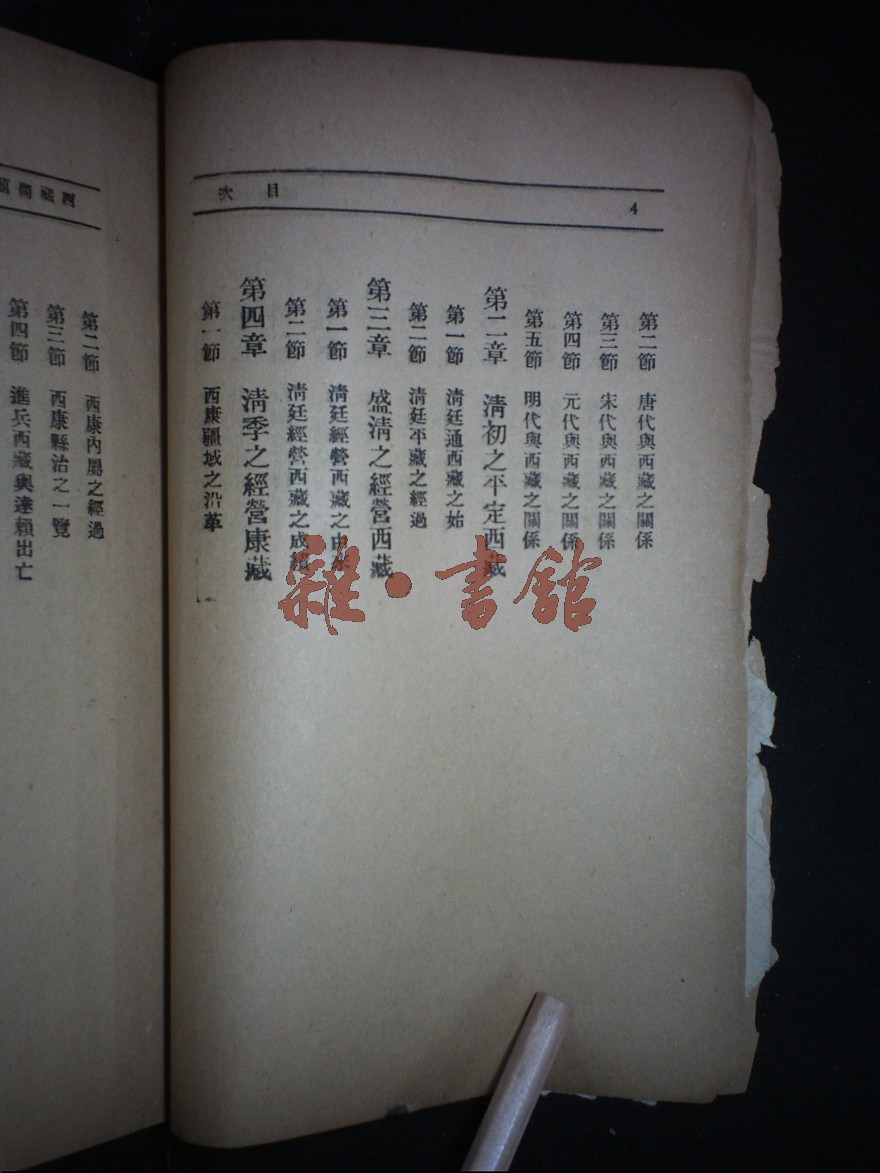 目次
4
第二節 唐代與西藏之關係
第三節 宋代與西藏之關係
第四節 元代與西藏之關係
第五節 明代與西藏之關係
第二章 清初之平定西藏
第一節 清廷通西藏之始
第二節 清廷平藏之經過
第三章 盛清之經營西藏
第一節 清廷經營西藏之由
第二節 清廷經營西藏之成績
第四章 清季之經營康藏
第一節 西康疆域之沿革
西藏問題
第二節 西康內屬之經過
第三節 西康縣治之一覽
第四節 進兵西藏與達賴出亡
雜·書館